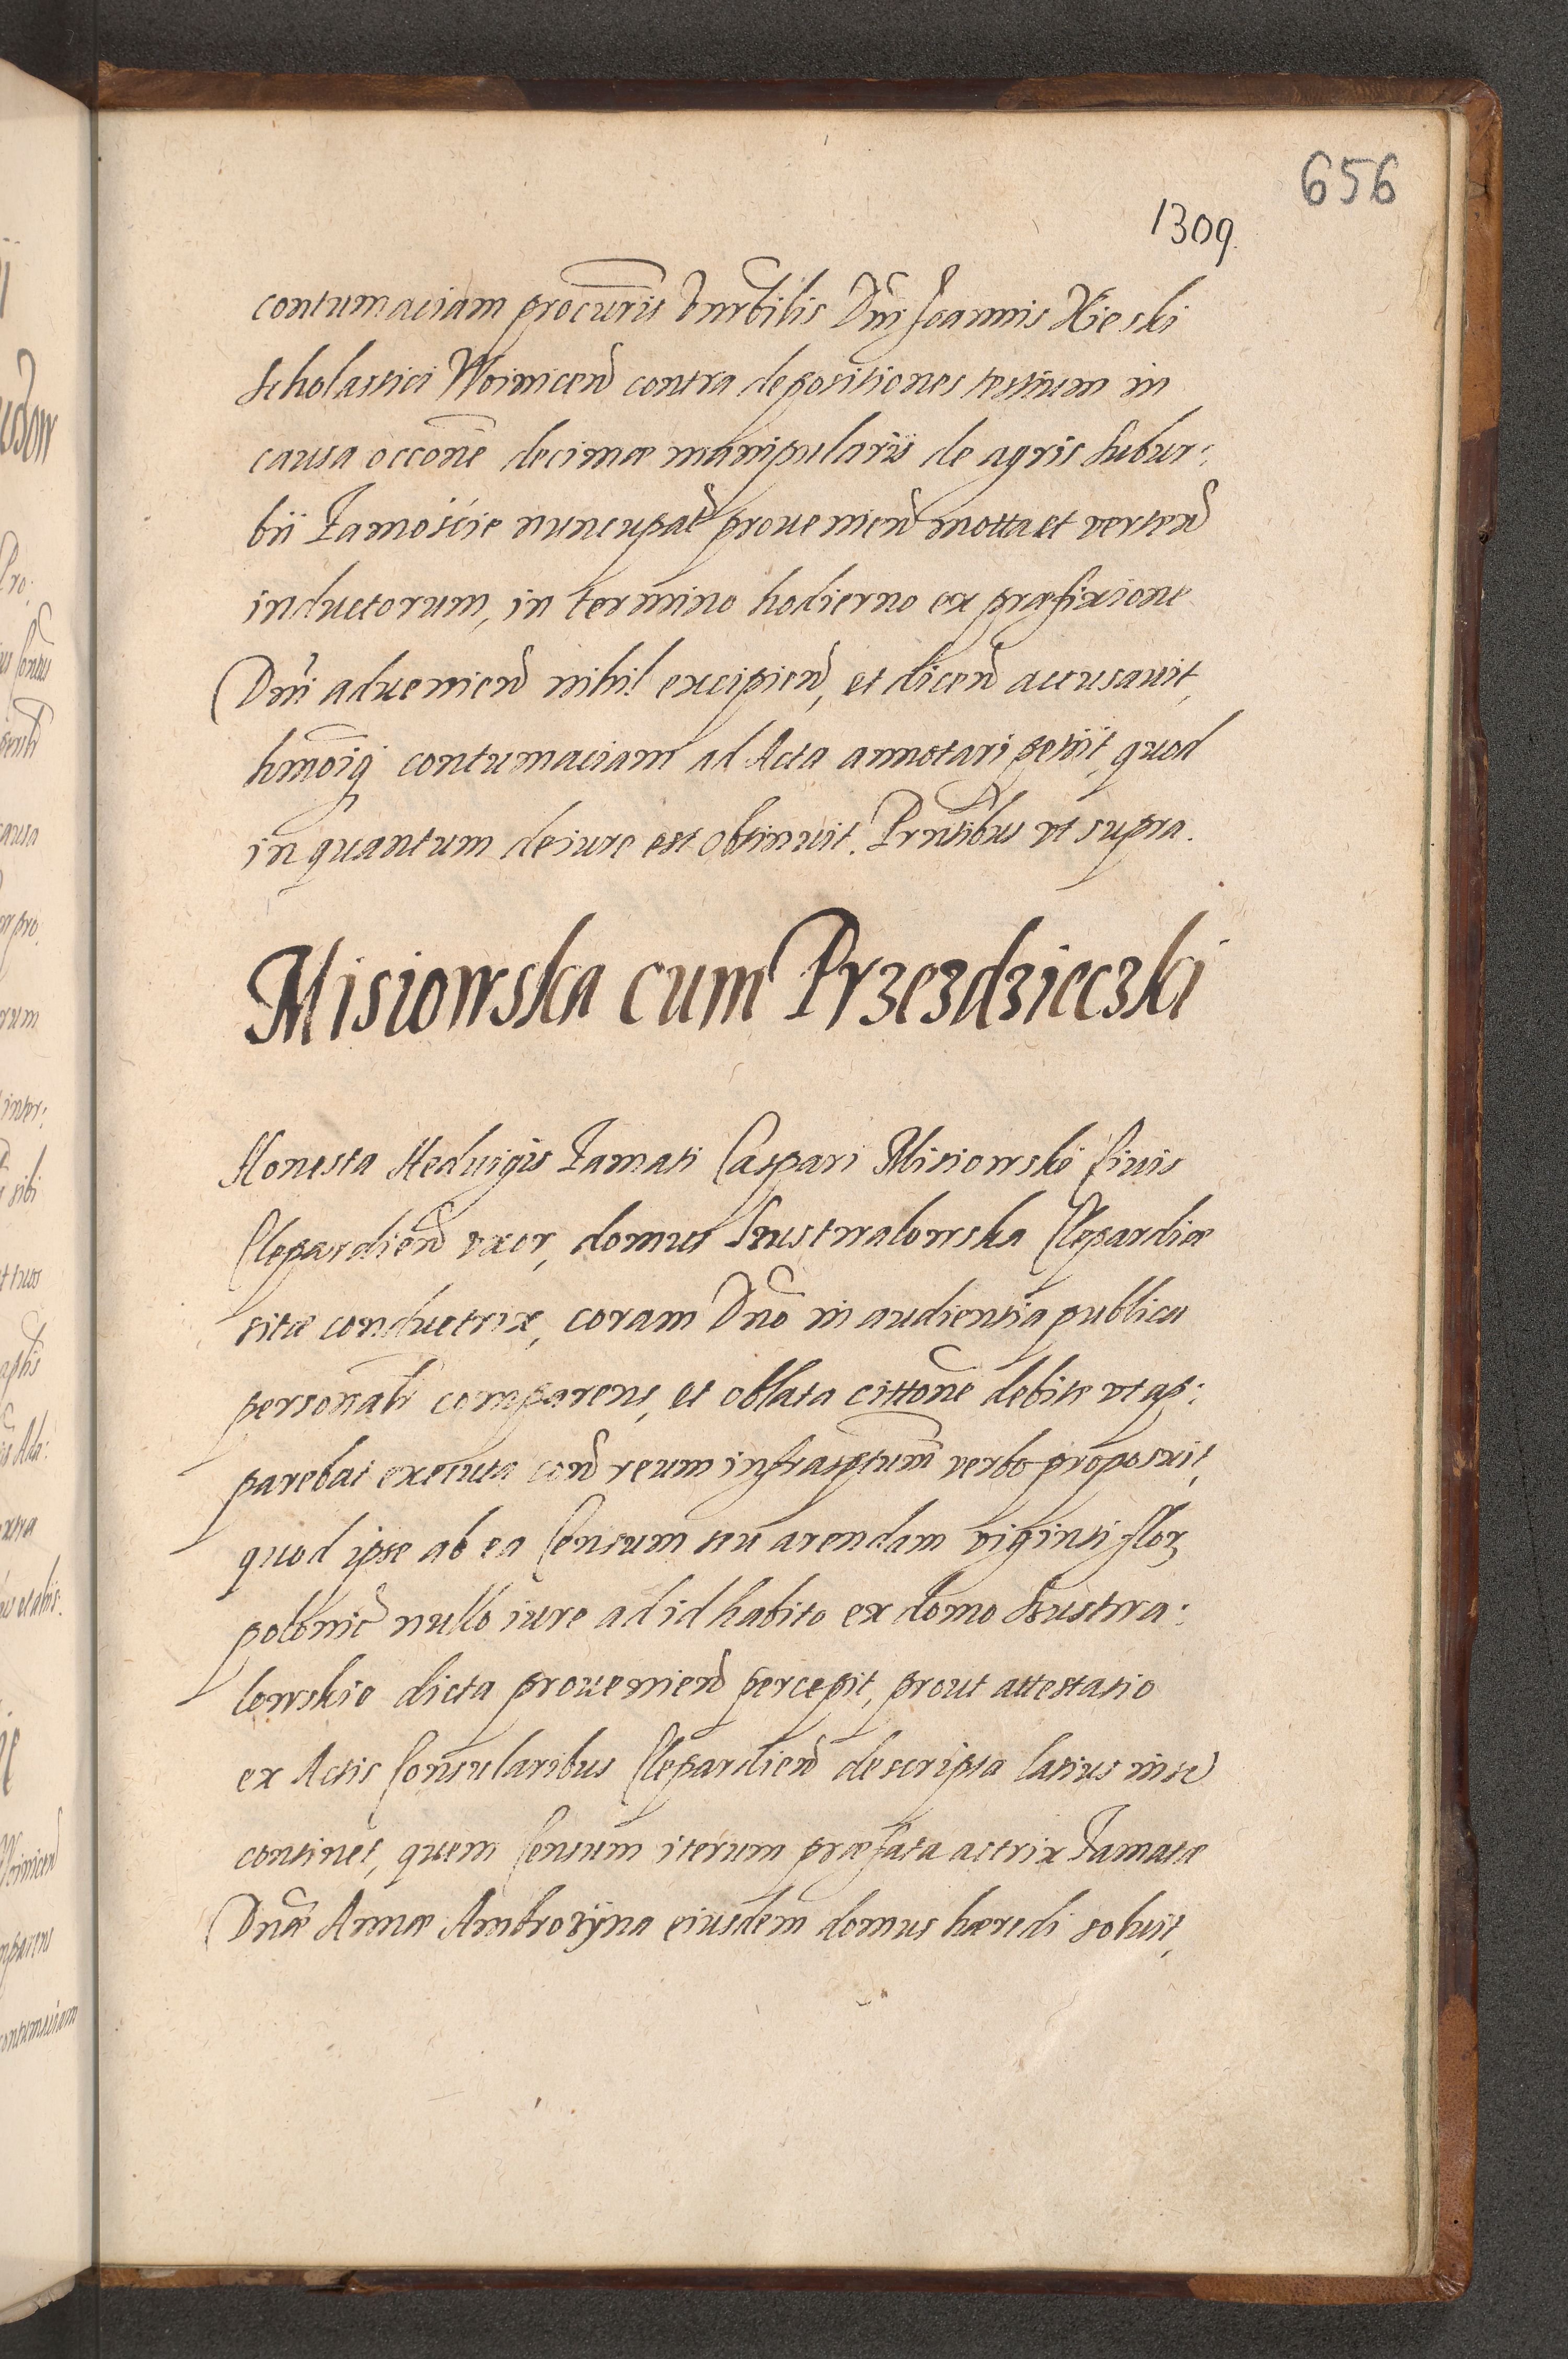 656
1309.
contumaciam procuris Vnrbilis Dni Joannis Xieski
Scholastici Woinicen contra depositiones testium in
causa occone decimæ manipularis de agris subur:
bii Zamoście nuncupat prouenien motta et verten
inductorum, in termino hodierno ex præfixione
Dni aduenien nihil excipien, et dicen accusauit,
hmoiq contumaciam ad Acta annotari petiit, quod
in quantum de iure est obtinuit. Prntibus vt supra.
Misiowska cum Przezdzieczki
Honesta Heduigis Famati Caspari Misiowski Ciuis
Clepardien vxor, domus Szustwalowska Clepardiæ
sitæ conductrix, coram Dno in audientia publica
personalr comparens, et oblata cittone debite vt ap:
parebat executa con reum infrascptum verbo proposuit,
quod ipse ab ea Censum seu arendam viginti flor
polonic nullo iure ad id habito ex domo Szustwa:
lowskie dicta prouenien percepit, prout attestatio
ex Actis Consularibus Clepardien descripta latius in se
continet, quem Censum iterum præfata actrix Famatæ
Dnæ Annæ Ambrozyna eiusdem domus hæredi soluit,